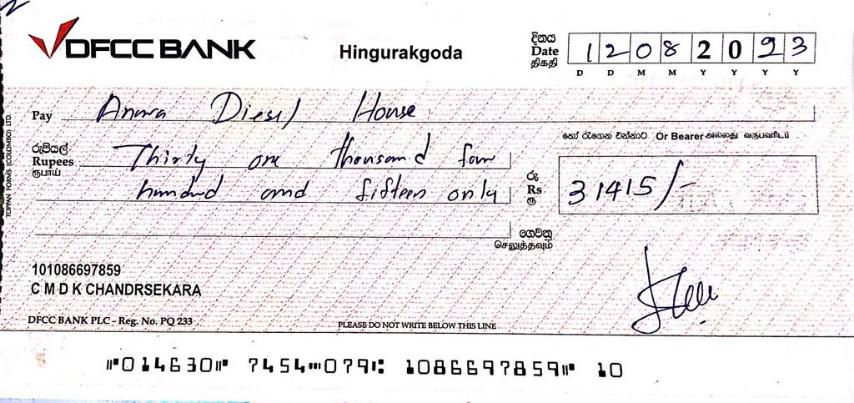 DFCC BANK
Hingurakgoda
දිනය
Date
திகதி
12082023
D D M M Y Y Y Y
Pay Anura Diesel House
හෝ රැගෙන එන්නාට Or Bearer அல்லது வருபவரிடம்
රුපියල්
Rupees
ரூபாய்
Thirty one thousand four
hundred and fifteen only
රු
Rs
ரூ
31415/-
ගෙවනු
செலுத்தவும்
101086697859
C M D K CHANDRSEKARA
DFCC BANK PLC - Reg. No. PQ 233
PLEASE DO NOT WRITE BELOW THIS LINE
TOPPAN FORMS (COLOMBO) LTD.
⑈014630⑈ 7454⑉079⑆ 1086697859⑈ 10